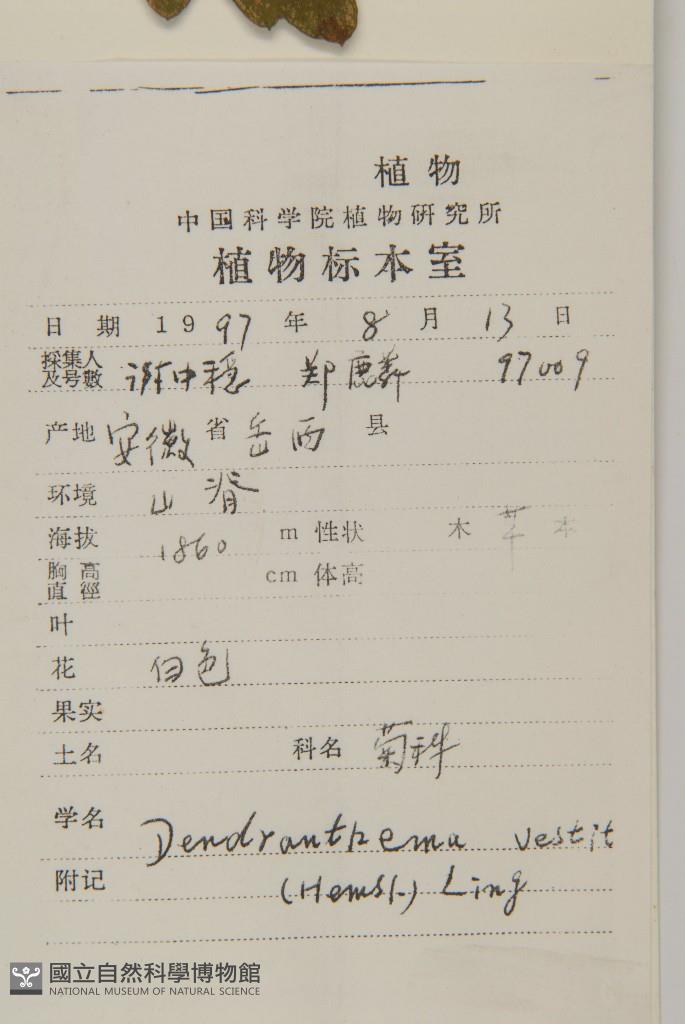 植物
中国科学院植物研究所
植物标本室
日期 1997 年 8 月 13 日
採集人及号數 谢中穩 郑麒麟 97009
产地 安徽 省 岳西 县
环境 山脊
海拔 1860 m 性状 木 草本
胸高直徑 cm 体高
叶
花 白色
果实
土名 科名 菊科
学名 Dendranthema vestit
附记 (Hemsl.) Ling
國立自然科學博物館
NATIONAL MUSEUM OF NATURAL SCIENCE